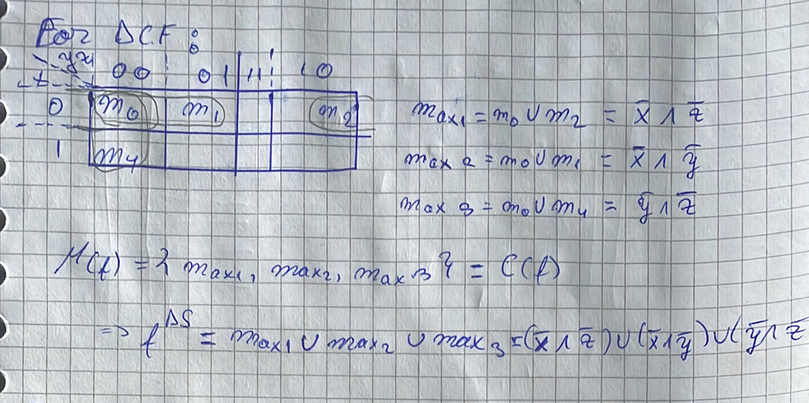 For DCF:
yz 00 01 11 10
x
0 m₀ m₁ m₂
1 m₄
max₁ = m₀ ∪ m₂ = x̄ ∧ z̄
max 2 = m₀ ∪ m₁ = x̄ ∧ ȳ
max 3 = m₀ ∪ m₄ = ȳ ∧ z̄
M(f) = { max₁, max₂, max 3 } = C(f)
=> f^DS = max₁ ∪ max₂ ∪ max 3 = (x̄ ∧ z̄) ∪ (x̄ ∧ ȳ) ∪ (ȳ ∧ z̄